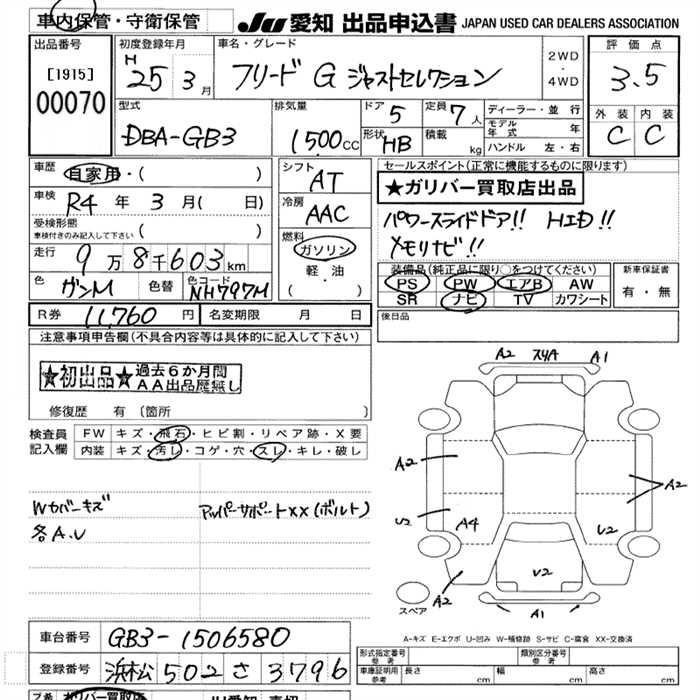 車内保管・守衛保管
JU 愛知 出品申込書 JAPAN USED CAR DEALERS ASSOCIATION
出品番号
[1915]
00070
初度登録年月
H 25年 3月
車名・グレード
フリード G ジャストセレクション
2WD・4WD
評価点
3.5
外装 内装
C C
型式
DBA-GB3
排気量
1500cc
ドア 5
形状 HB
定員 7人
積載 kg
ディーラー・並行
モデル年式 年
ハンドル 左・右
車歴 自家用・( )
車検 R4年 3月( 日)
受検形態
車検付きのみ記入して下さい ( )
走行 9万8千603km
色 ガンM 色替 色コード NH797M
シフト AT
冷房 AAC
燃料
ガソリン
軽・油
( )
セールスポイント(正常に機能するものに限ります)
★ガリバー買取店出品
パワースライドドア!! HID!!
メモリナビ!!
装備品(純正品に限り○をつけてください)
PS PW エアB AW
SR ナビ TV カワシート
新車保証書
有・無
R券 11,760円 名変期限 月 日
後日品
注意事項申告欄(不具合内容等は具体的に記入して下さい)
★初出品★過去6か月間
AA出品歴無し
修復歴 有(箇所 )
検査員記入欄
FW キズ・飛石・ヒビ割・リペア跡・X要
内装 キズ・汚レ・コゲ・穴・スレ・キレ・破レ
Wカバーキズ アッパーサポートXX(ボルト)
各A.U
A2 スリA A1
A2 A2
U2 A4 U2
U2
A2 A1
スペア
A-キズ E-エクボ U-凹み W-補修跡 S-サビ C-腐食 XX-交換済
車台番号 GB3-1506580
登録番号 浜松 502 さ 3796
形式指定番号 参考 類別区分番号 参考
車庫証明用 参考 長さ cm 幅 cm 高さ cm